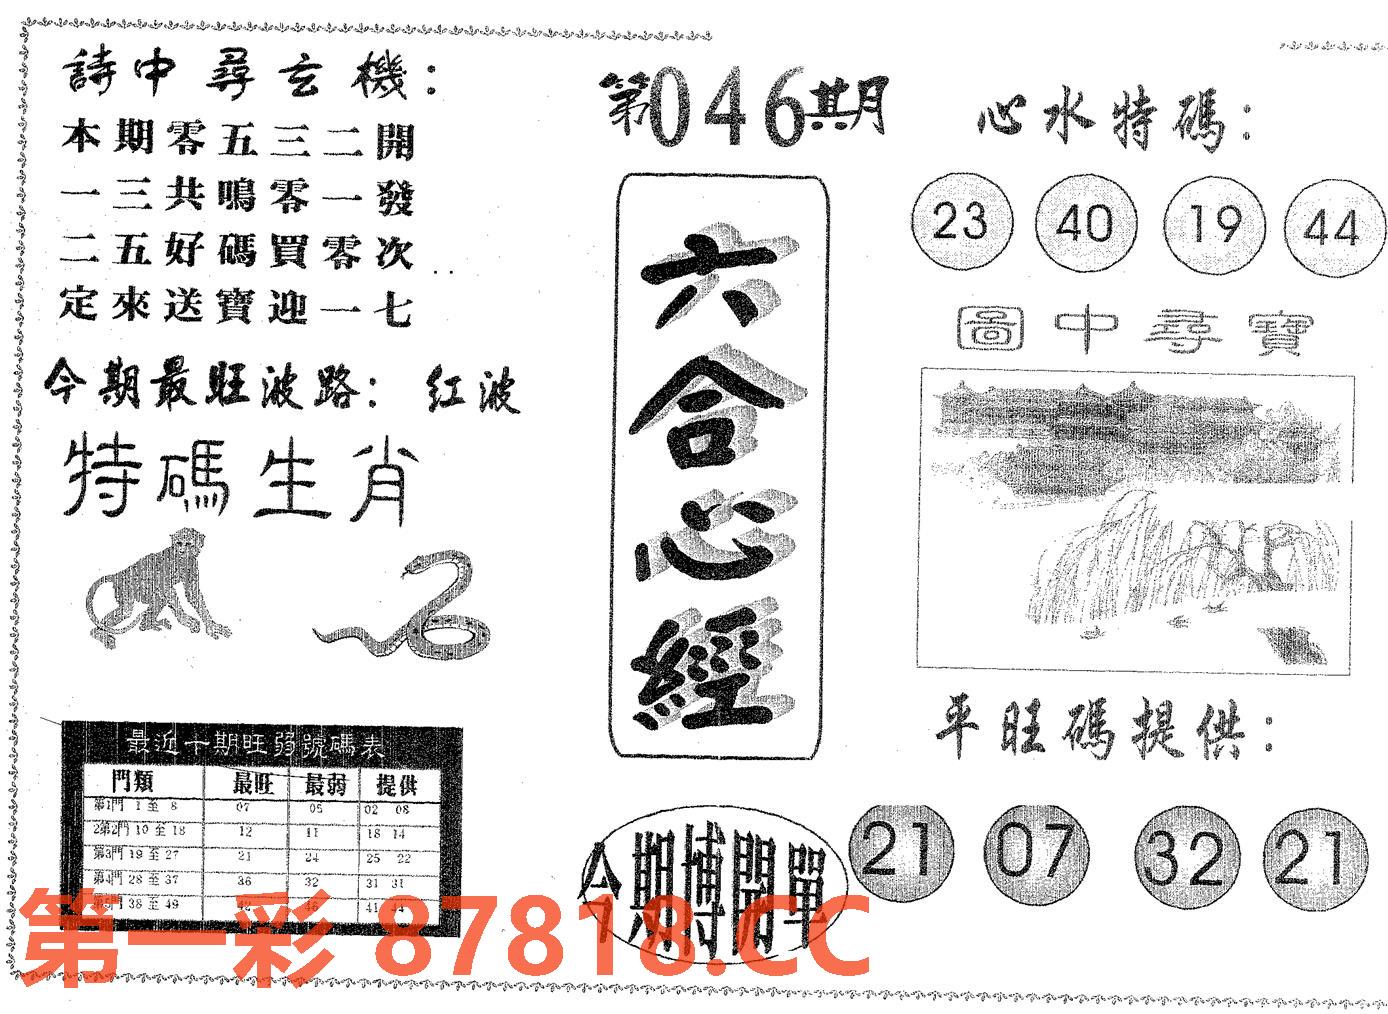 詩中尋玄機：
本期零五三二開
一三共鳴零一發
二五好碼買零次
定來送寶迎一七
今期最旺波路： 紅波
特碼生肖
最近十期旺弱號碼表
門類 最旺 最弱 提供
第1門 1 至 8 07 05 02 08
2第2門 10 至 18 12 11 18 14
第3門 19 至 27 21 24 25 22
第4門 28 至 37 36 32 31 31
第5門 38 至 49 42 46 41 44
第046期
六合心經
今期博開單
心水特碼：
23 40 19 44
圖中尋寶
平旺碼提供：
21 07 32 21
第一彩 87818.CC